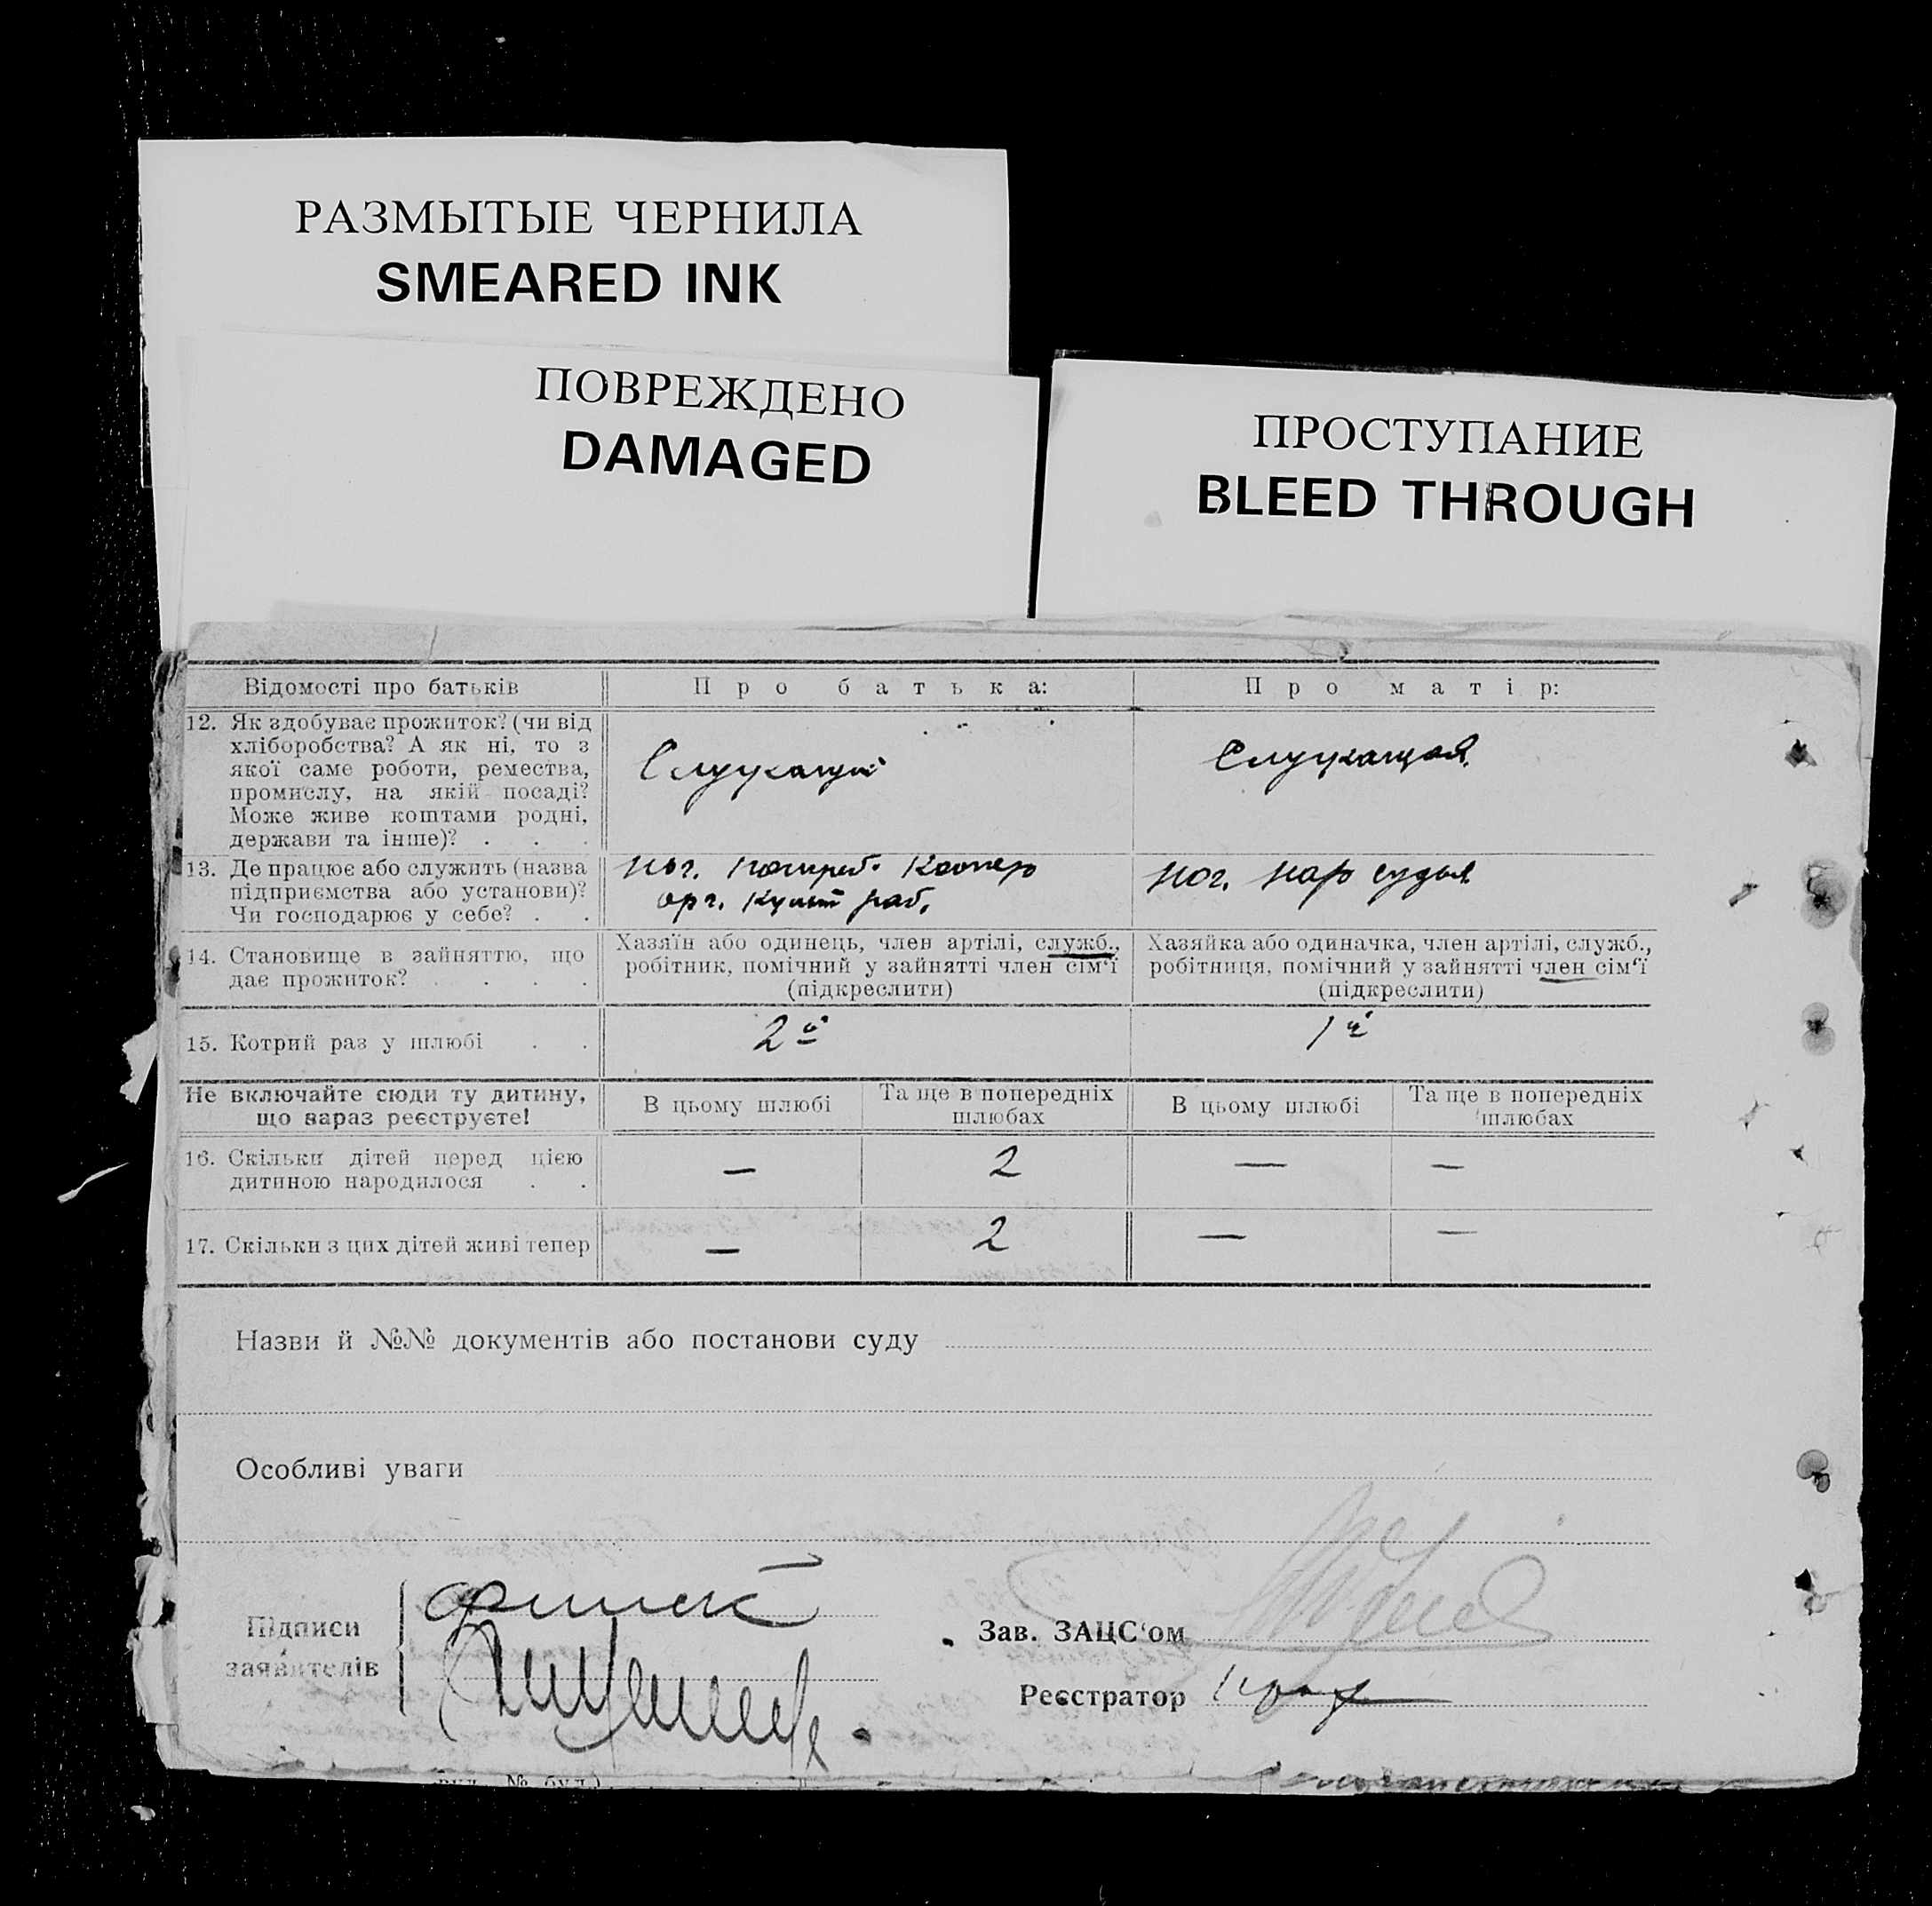 РАЗМЫТЫЕ ЧЕРНИЛА
SMEARED INK
ПОВРЕЖДЕНО
DAMAGED
ПРОСТУПАНИЕ
BLEED THROUGH
Відомості про батьків
Про батька:
Про матір:
12. Як здобуває прожиток? (чи від
хліборобства? А як ні, то з
якої саме роботи, ремества,
промислу, на якій посаді?
Може живе коштами родні,
держави та інше)? . . .
Служащий
Служащая
13. Де працює або служить (назва
підприємства або установи)?
Чи господарює у себе? . .
потреб. Коопер
орг. Культ раб.
нар судья
14. Становище в зайняттю, що
дає прожиток? . . . .
Хазяїн або одинець, член артілі, служб.,
робітник, помічний у зайнятті член сім‘ї
(підкреслити)
Хазяйка або одиначка, член артілі, служб.,
робітниця, помічний у зайнятті член сім‘ї
(підкреслити)
15. Котрий раз у шлюбі . .
2й
1й
Не включайте сюди ту дитину,
що зараз реєструєте!
В цьому шлюбі
Та ще в попередніх
шлюбах
В цьому шлюбі
Та ще в попередніх
шлюбах
16. Скільки дітей перед цією
дитиною народилося . .
—
2
—
—
17. Скільки з цих дітей живі тепер
—
2
—
—
Назви й №№ документів або постанови суду
Особливі уваги
Підписи
заявителів
Зав. ЗАЦС‘ом
Реєстратор
вул. № буд.)